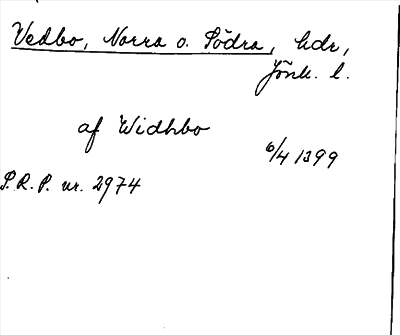 Vedbo, Norra o. Södra, hdr,
Jönk. l.
af Widhbo
6/4 1399
S.R.P. nr. 2974